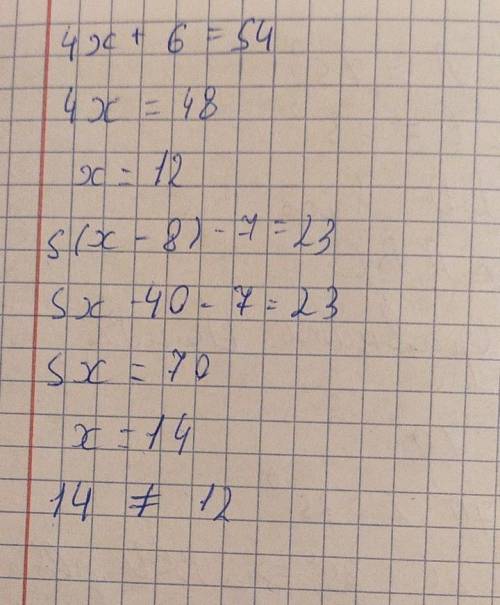 4x + 6 = 54
4x = 48
x = 12
5(x - 8) - 7 = 23
5x - 40 - 7 = 23
5x = 70
x = 14
14 ≠ 12